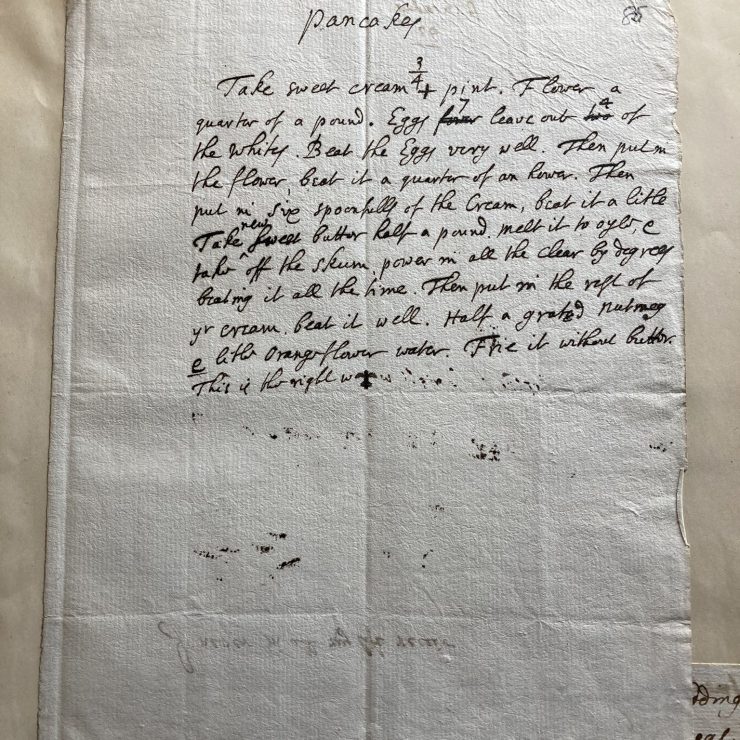 Pancakes
85
Take sweet cream 3/4 + pint. Flower a
quarter of a pound. Eggs four 7 leave out two 4 of
the whites. Beat the Eggs very well. Then put in
the flower, beat it a quarter of an hower. Then
put in six spoonfulls of the Cream, beat it a litle
Take new sweet butter half a pound, melt it to oyle, e
take off the skum, power in all the clear by degrees
beating it all the time. Then put in the rest of
yr cream. beat it well. Half a grated nutmeg
e litle Orangeflower water. Frie it without butter.
This is the right
dding